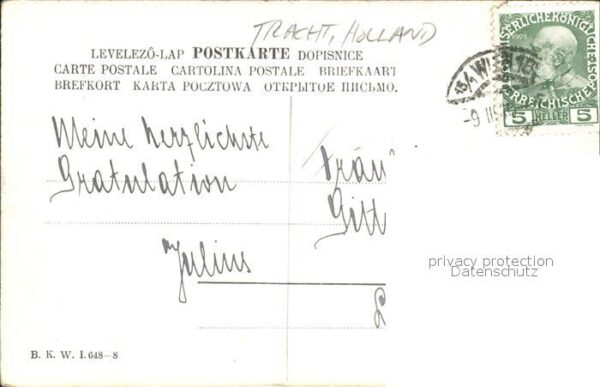 TRACHT, HOLLAND
LEVELEZŐ-LAP POSTKARTE DOPISNICE
CARTE POSTALE CARTOLINA POSTALE BRIEFKAART
BREFKORT KARTA POCZTOWA ОТКРЫТОЕ ПИСЬМО.
1908
5 HELLER 5
WIEN
Meine herzlichste
Gratulation
Julius
Fräu
Gitt
L
privacy protection
Datenschutz
B. K. W. I. 648-8